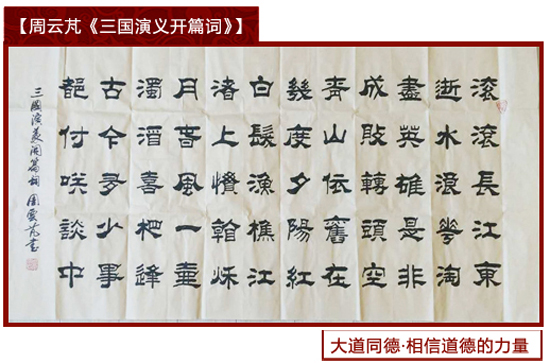 【周云芃《三国演义开篇词》】
滚滚長江東
逝水浪花淘
盡英雄是非
成敗轉頭空
青山依舊在
幾度夕陽紅
白髮漁樵江
渚上慣看秋
月春風一壺
濁酒喜相逢
古今多少事
都付咲談中
三國演義開篇詞 周雲芃書
大道同德·相信道德的力量